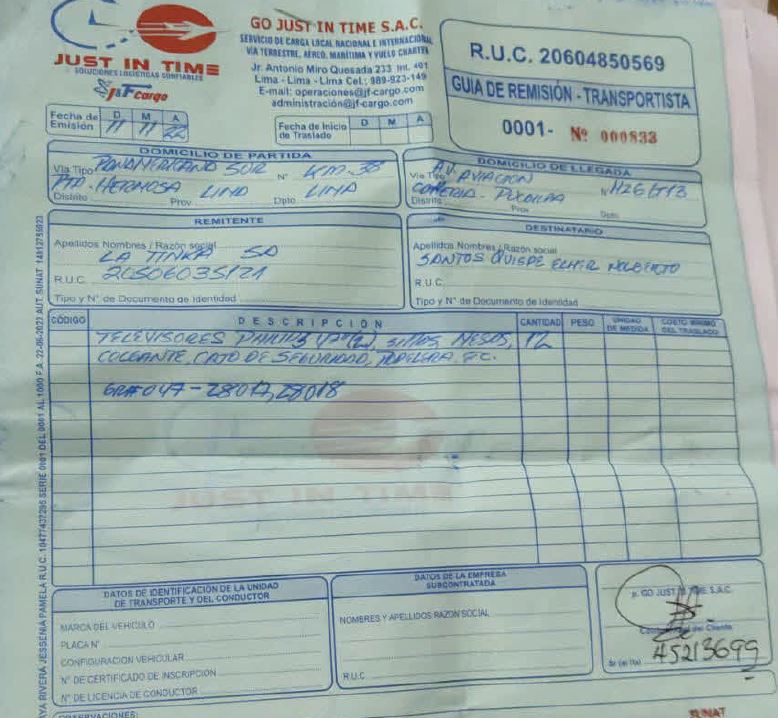 JUST IN TIME
SOLUCIONES LOGISTICAS CONFIABLES
J&F Cargo
GO JUST IN TIME S.A.C.
SERVICIO DE CARGA LOCAL NACIONAL E INTERNACIONAL
VÍA TERRESTRE, AÉREO, MARÍTIMA Y VUELO CHARTER
Jr. Antonio Miro Quesada 233 Int. 401
Lima - Lima - Lima Cel.: 989-823-149
E-mail: operaciones@jf-cargo.com
administración@jf-cargo.com
R.U.C. 20604850569
GUIA DE REMISIÓN - TRANSPORTISTA
0001- Nº 000833
Fecha de Emisión D M A
11 11 22
Fecha de Inicio de Traslado D M A
DOMICILIO DE PARTIDA
Via Tipo PANAMERICANO SUR Nº KM-38
PTA-HERMOSA LIMA LIMA
Distrito Prov. Dpto.
DOMICILIO DE LLEGADA
Via Tipo AV. AVIACION Nº
Distrito Prov. Dpto.
REMITENTE
Apellidos Nombres / Razón social
LA TINKA SA
R.U.C. 20506035121
Tipo y N° de Documento de Identidad
DESTINATARIO
Apellidos Nombres / Razón social
SANTOS QUISPE ELMER
R.U.C.
Tipo y N° de Documento de Identidad
CÓDIGO DESCRIPCIÓN CANTIDAD PESO UNIDAD DE MEDIDA COSTO MINIMO DEL TRASLADO
TELEVISORES PHILIPS SILLAS MESAS, 12
COLGANTE, CAJO DE SEGURIDAD, PAPELERA
GR# 047-28017,28018
JUST IN TIME
DATOS DE IDENTIFICACIÓN DE LA UNIDAD DE TRANSPORTE Y DEL CONDUCTOR
MARCA DEL VEHICULO
PLACA N°
CONFIGURACION VEHICULAR
N° DE CERTIFICADO DE INSCRIPCION
N° DE LICENCIA DE CONDUCTOR
DATOS DE LA EMPRESA SUBCONTRATADA
NOMBRES Y APELLIDOS RAZON SOCIAL
R.U.C.
p. GO JUST IN TIME S.A.C.
del Cliente
45213699
OBSERVACIONES:
SUNAT